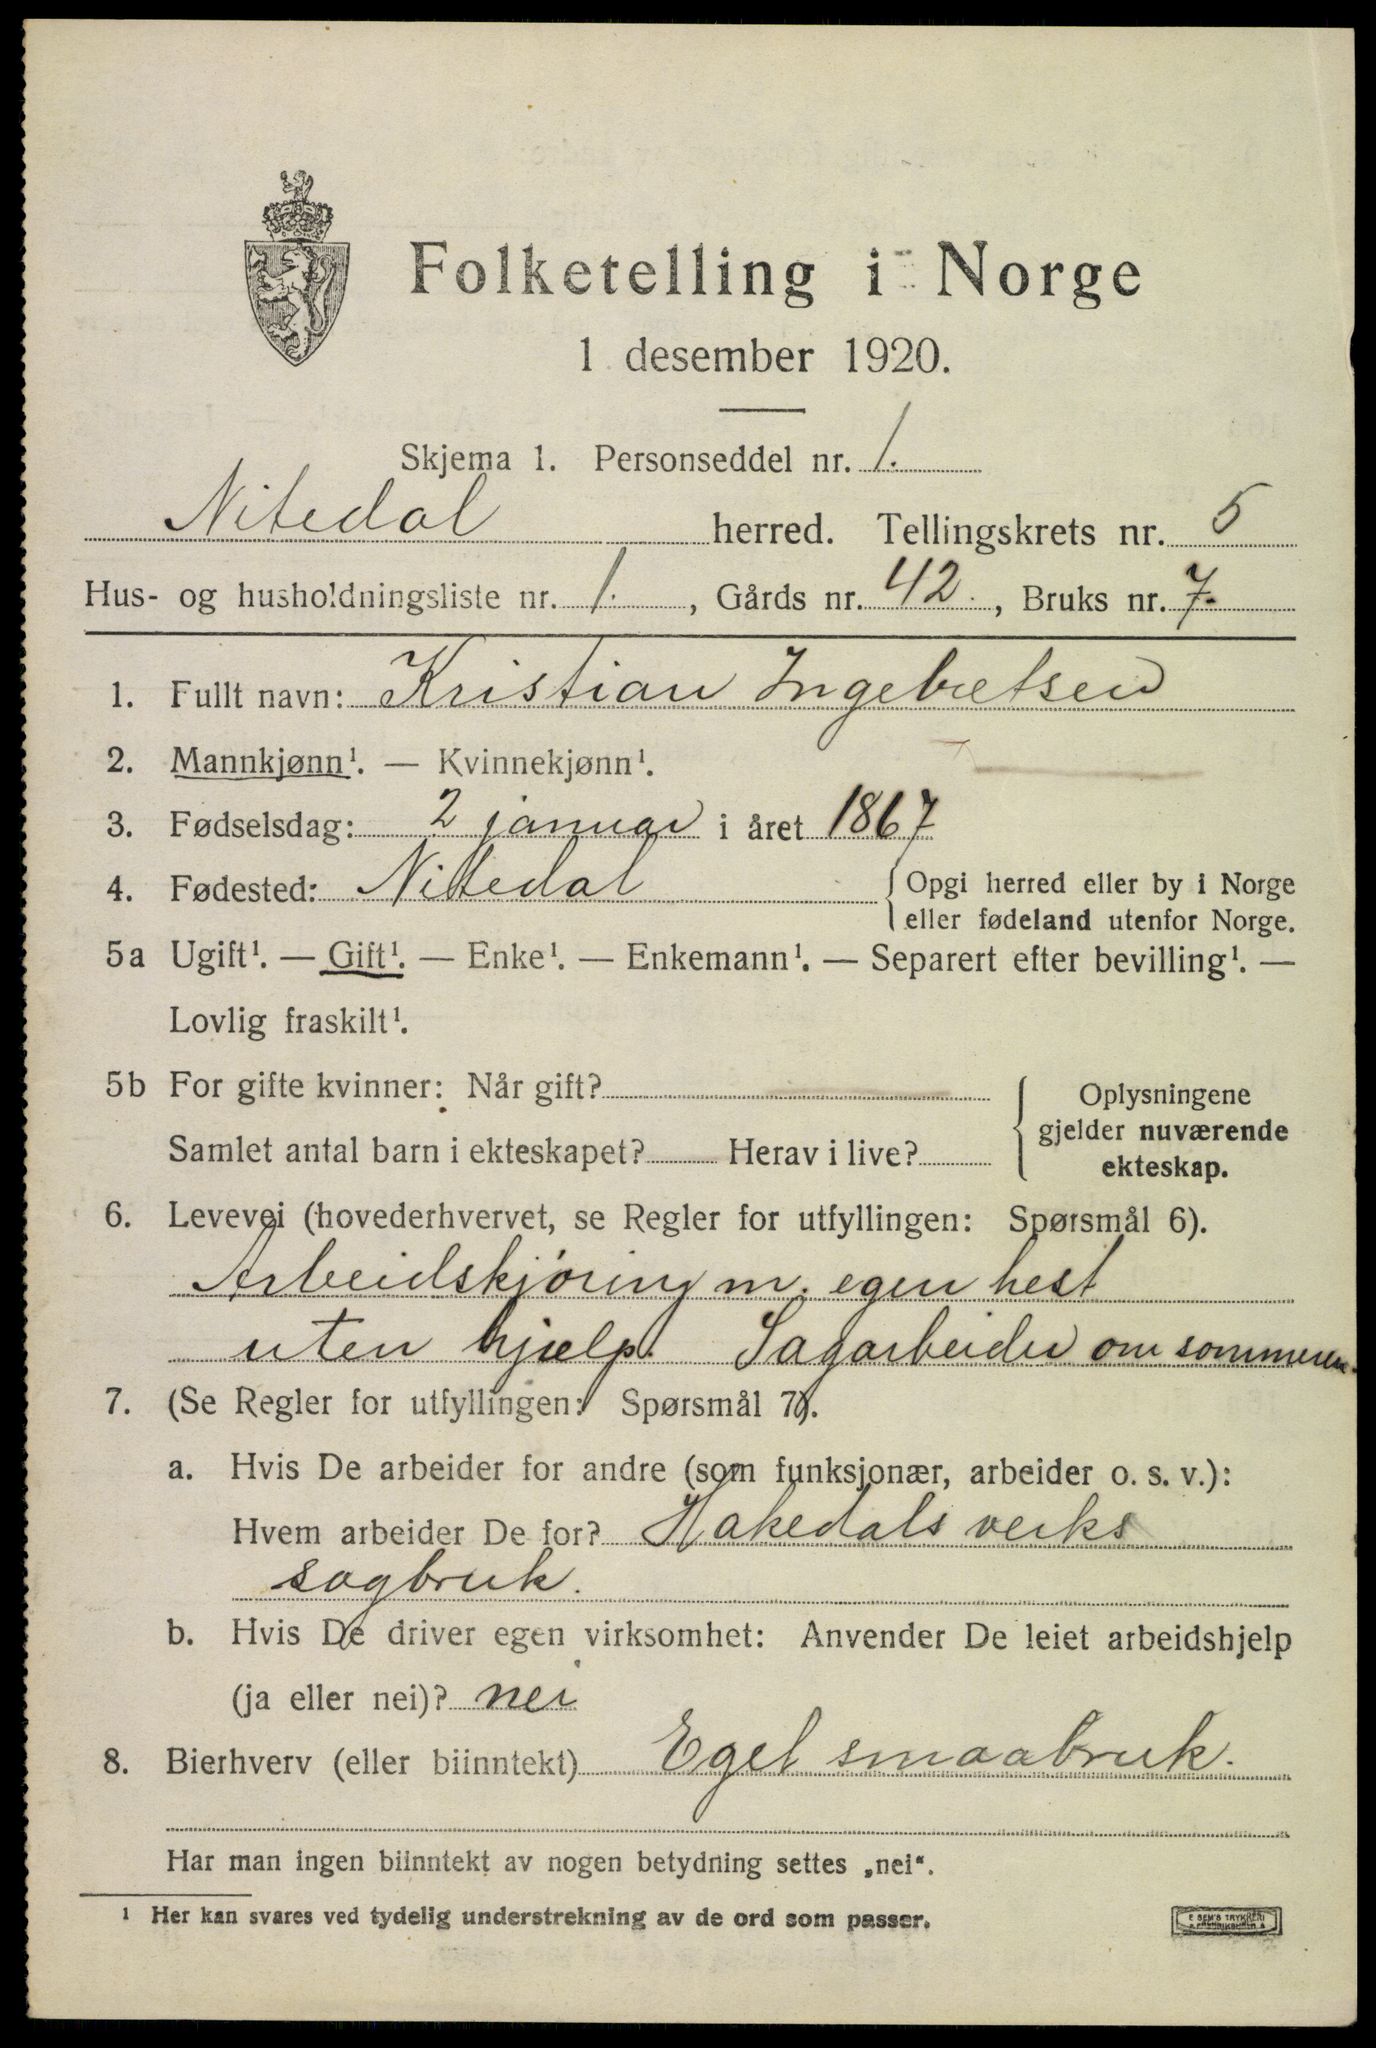 Folketelling i Norge
1 desember 1920.
Skjema 1. Personseddel nr. 1.
Nitedal herred. Tellingskrets nr. 5
Hus- og husholdningsliste nr. 1., Gårds nr. 42., Bruks nr. 7.
1. Fullt navn: Kristian Ingebretsen
2. Mannkjønn¹. — Kvinnekjønn¹.
3. Fødselsdag: 2 januar i året 1867
4. Fødested: Nitedal {Opgi herred eller by i Norge
eller fødeland utenfor Norge.
5a Ugift¹. — Gift¹. — Enke¹. — Enkemann¹. — Separert efter bevilling¹. —
Lovlig fraskilt¹.
5b For gifte kvinner: Når gift?
Samlet antal barn i ekteskapet? Herav i live?
Oplysningene
gjelder nuværende
ekteskap.
6. Levevei (hovederhvervet, se Regler for utfyllingen: Spørsmål 6).
Arbeidskjøring m. egen hest
uten hjælp. Sagarbeider om sommeren.
7. (Se Regler for utfyllingen: Spørsmål 7).
a. Hvis De arbeider for andre (som funksjonær, arbeider o. s. v.):
Hvem arbeider De for? Hakedals verks
sagbruk.
b. Hvis De driver egen virksomhet: Anvender De leiet arbeidshjelp
(ja eller nei)? nei
8. Bierhverv (eller biinntekt) Eget smaabruk.
Har man ingen biinntekt av nogen betydning settes „nei“.
¹ Her kan svares ved tydelig understrekning av de ord som passer.